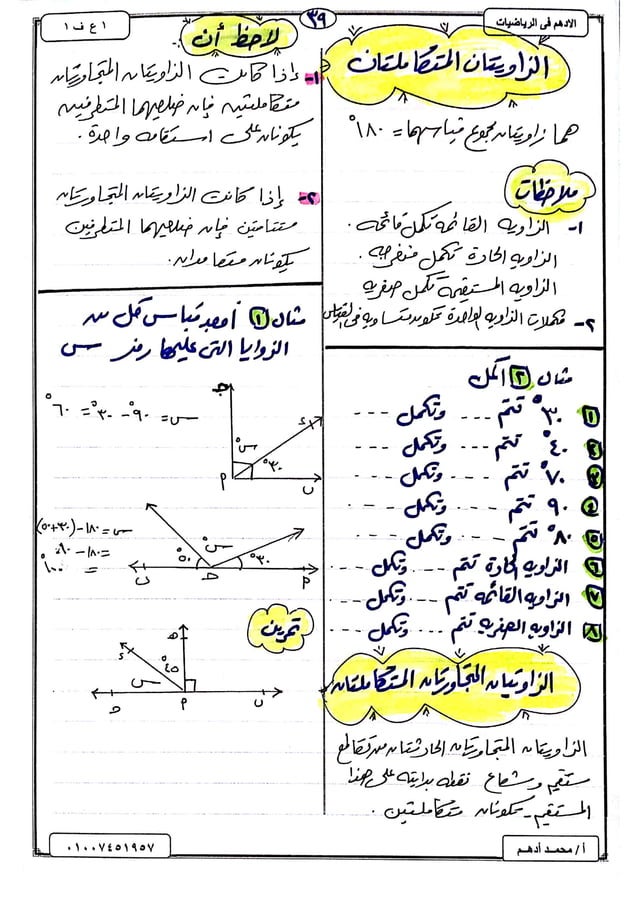 الادهم فى الرياضيات
٣٩
١ ع ف ١
الزاويتان المتكاملتان
هما زاويتان مجموع قياسهما = ١٨٠°
ملاحظات
١- الزاويه القائمه تكمل قائمه .
الزاويه الحادة تكمل منفرجه .
الزاويه المستقيمة تكمل صفريه
٢- مكملات الزاويه الواحدة تكون متساويه فى القياس
مثال ٢ أكمل
١ ٣٠° تتم --- وتكمل ---
٢ ٤٠° تتم --- وتكمل ---
٣ ٧٠° تتم --- وتكمل ---
٤ ٩٠ تتم --- وتكمل ---
٥ ٨٠° تتم --- وتكمل ---
٦ الزاويه الحادة تتم --- وتكمل ---
٧ الزاويه القائمه تتم --- وتكمل ---
٨ الزاويه الصفريه تتم --- وتكمل ---
الزاوتيان المتجاورتان المتكاملتان
الزاويتان المتجاورتان الحادثتان من تقاطع
مستقيم وشعاع نقطه بدايته على هذا
المستقيم - تكونان متكاملتين .
لاحظ أن
١- إذا كانت الزاويتان المتجاورتان
متكاملتين فإن ضلعيهما المتطرفين
يكونان على استقامه واحدة .
٢- إذا كانت الزاويتان المتجاورتان
متتامتين فإن ضلعيهما المتطرفين
يكونان متعامدان.
مثال ١ أوجد قياس كل من
الزوايا التى عليها رمز س
س = ٩٠° - ٣٠° = ٦٠°
ج
س°
٣٠°
د
م
ب
س = ١٨٠ - (٣٠ + ٥٠)
= ١٨٠ - ٨٠
= ١٠٠°
٥٠°
س°
٣٠°
ب
م
تمرين
٤٥°
س
م
ب
أ / محمد أدهم
٠١٠٠٧٤٥١٩٥٧